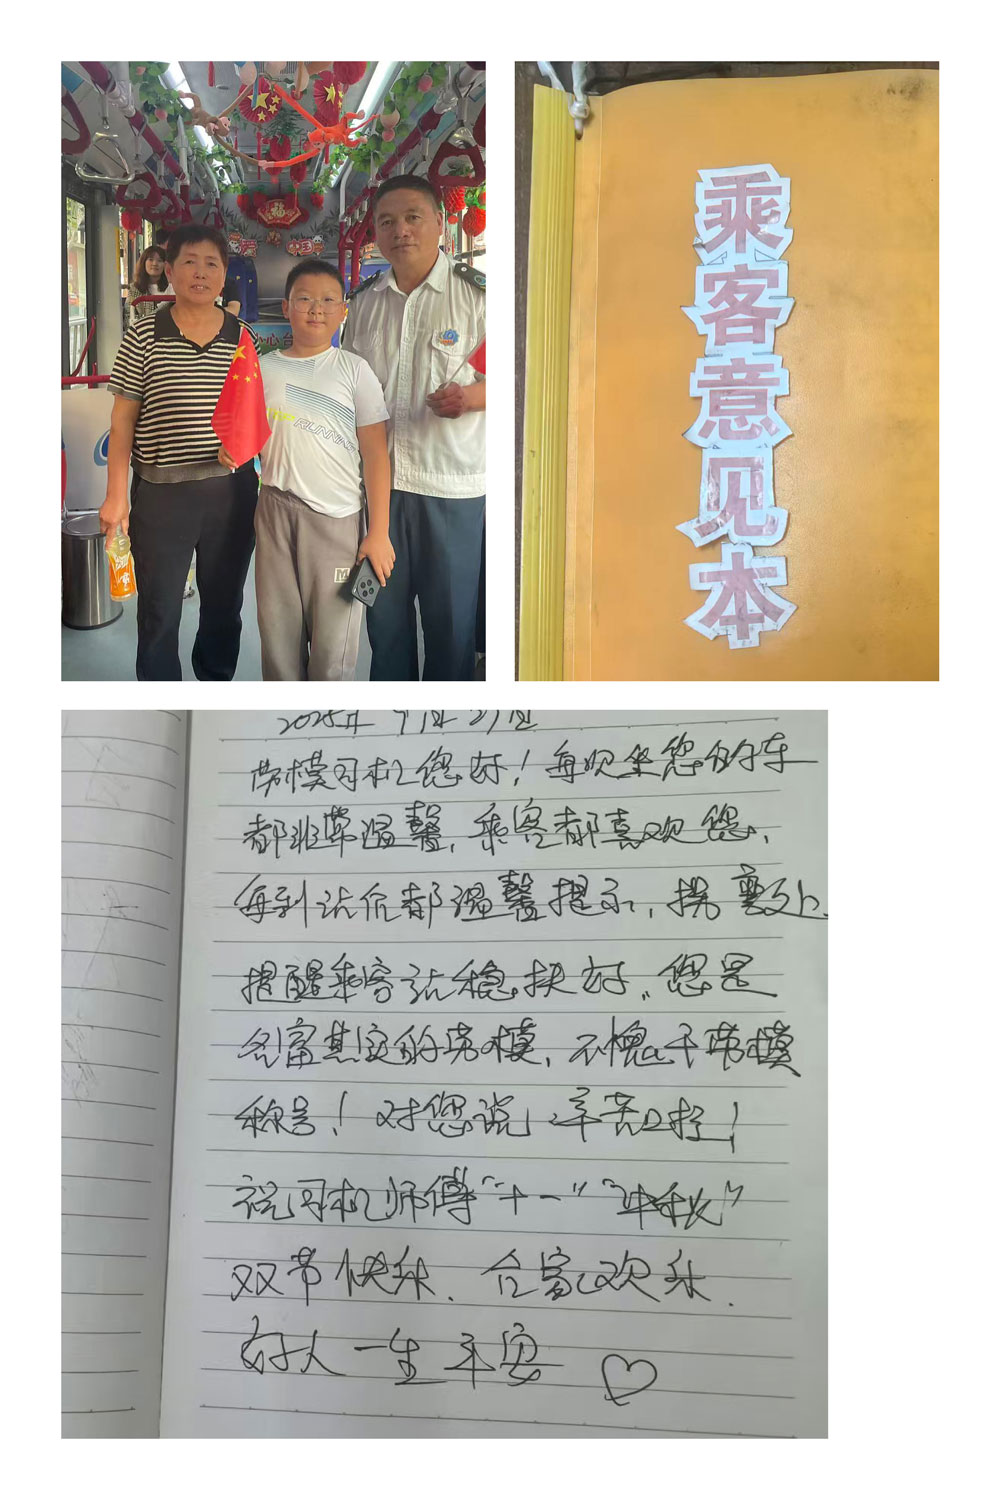 福
中国
心心台
RUNNING
M
乘客意见本
2025年9月29日
劳模司机您好！每次坐您的车
都非常温馨，乘客都喜欢您，
每到站点都温馨提示，拐弯处
提醒乘客站稳扶好，您是
名富其实的劳模，不愧于劳模
称号！对您说 辛苦啦！
祝司机师傅“十一”“中秋”
双节快乐．合家欢乐．
好人一生平安